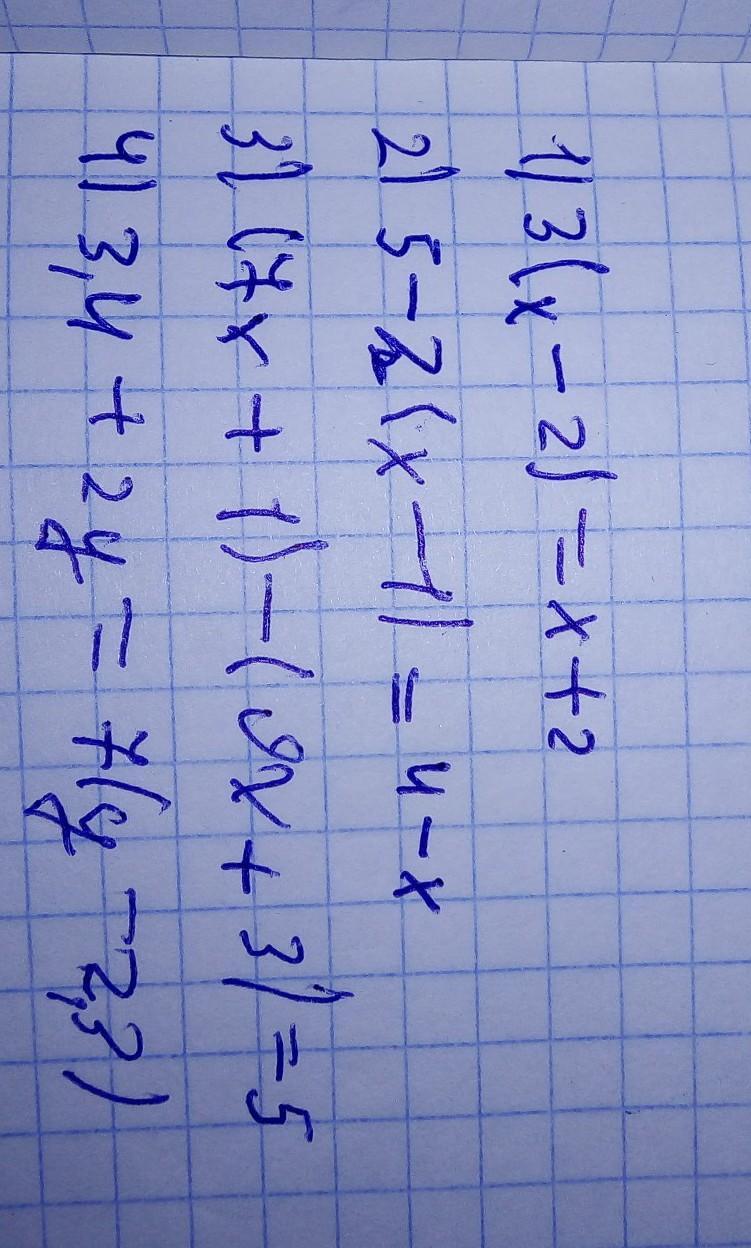 1) 3(x - 2) = x + 2
2) 5 - 2(x - 1) = 4 - x
3) (7x + 1) - (9x + 3) = 5
4) 3,4 + 2y = 7(y - 2,3)